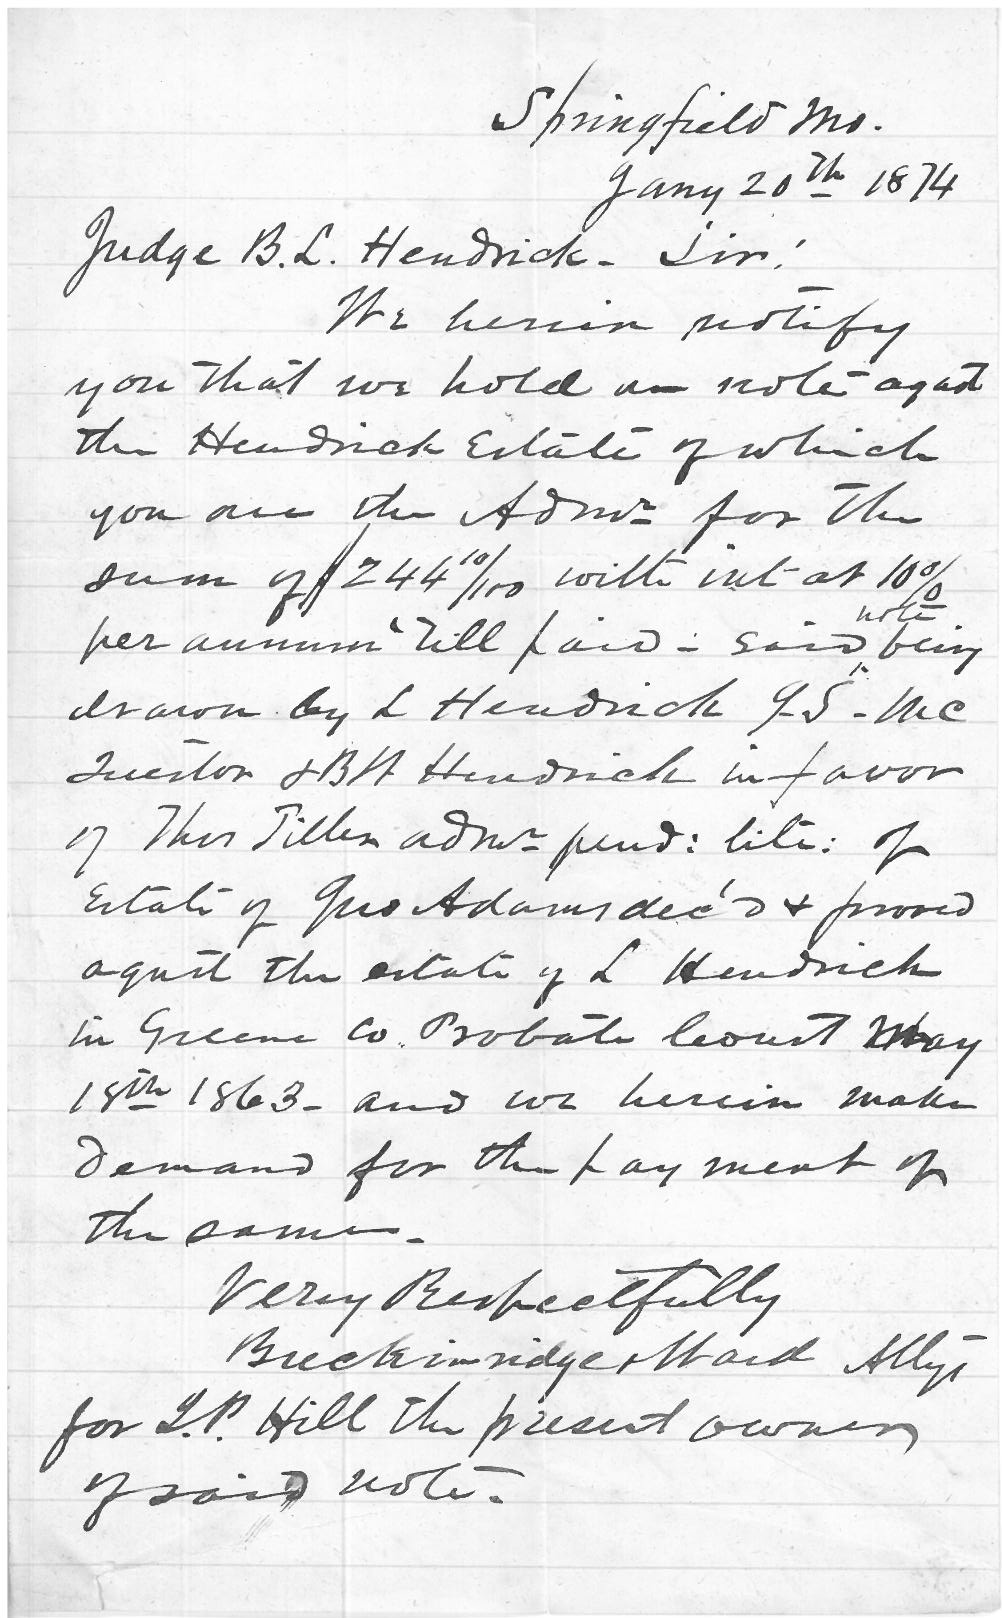 Springfield Mo.
Jany 20th 1874
Judge B. L. Hendrick - Sir!
We herein notify
you that we hold a note agast
the Hendrick Estate of which
you are the Admr for the
sum of $244 10/100 with int at 10%
per annum till paid - said note being
drawn by L Hendrick J. S. Mc
Queston & B H Hendrick in favor
of Thos Tiller admr pend: lite: of
Estate of Jno Adams dec'd & proved
agast the estate of L Hendrick
in Greene Co. Probate Court May
18th 1863 - and we herein make
demand for the payment of
the same -
Very Respectfully
Breckinridge & Ward Attys
for I. P. Hill the present owner
of said note -